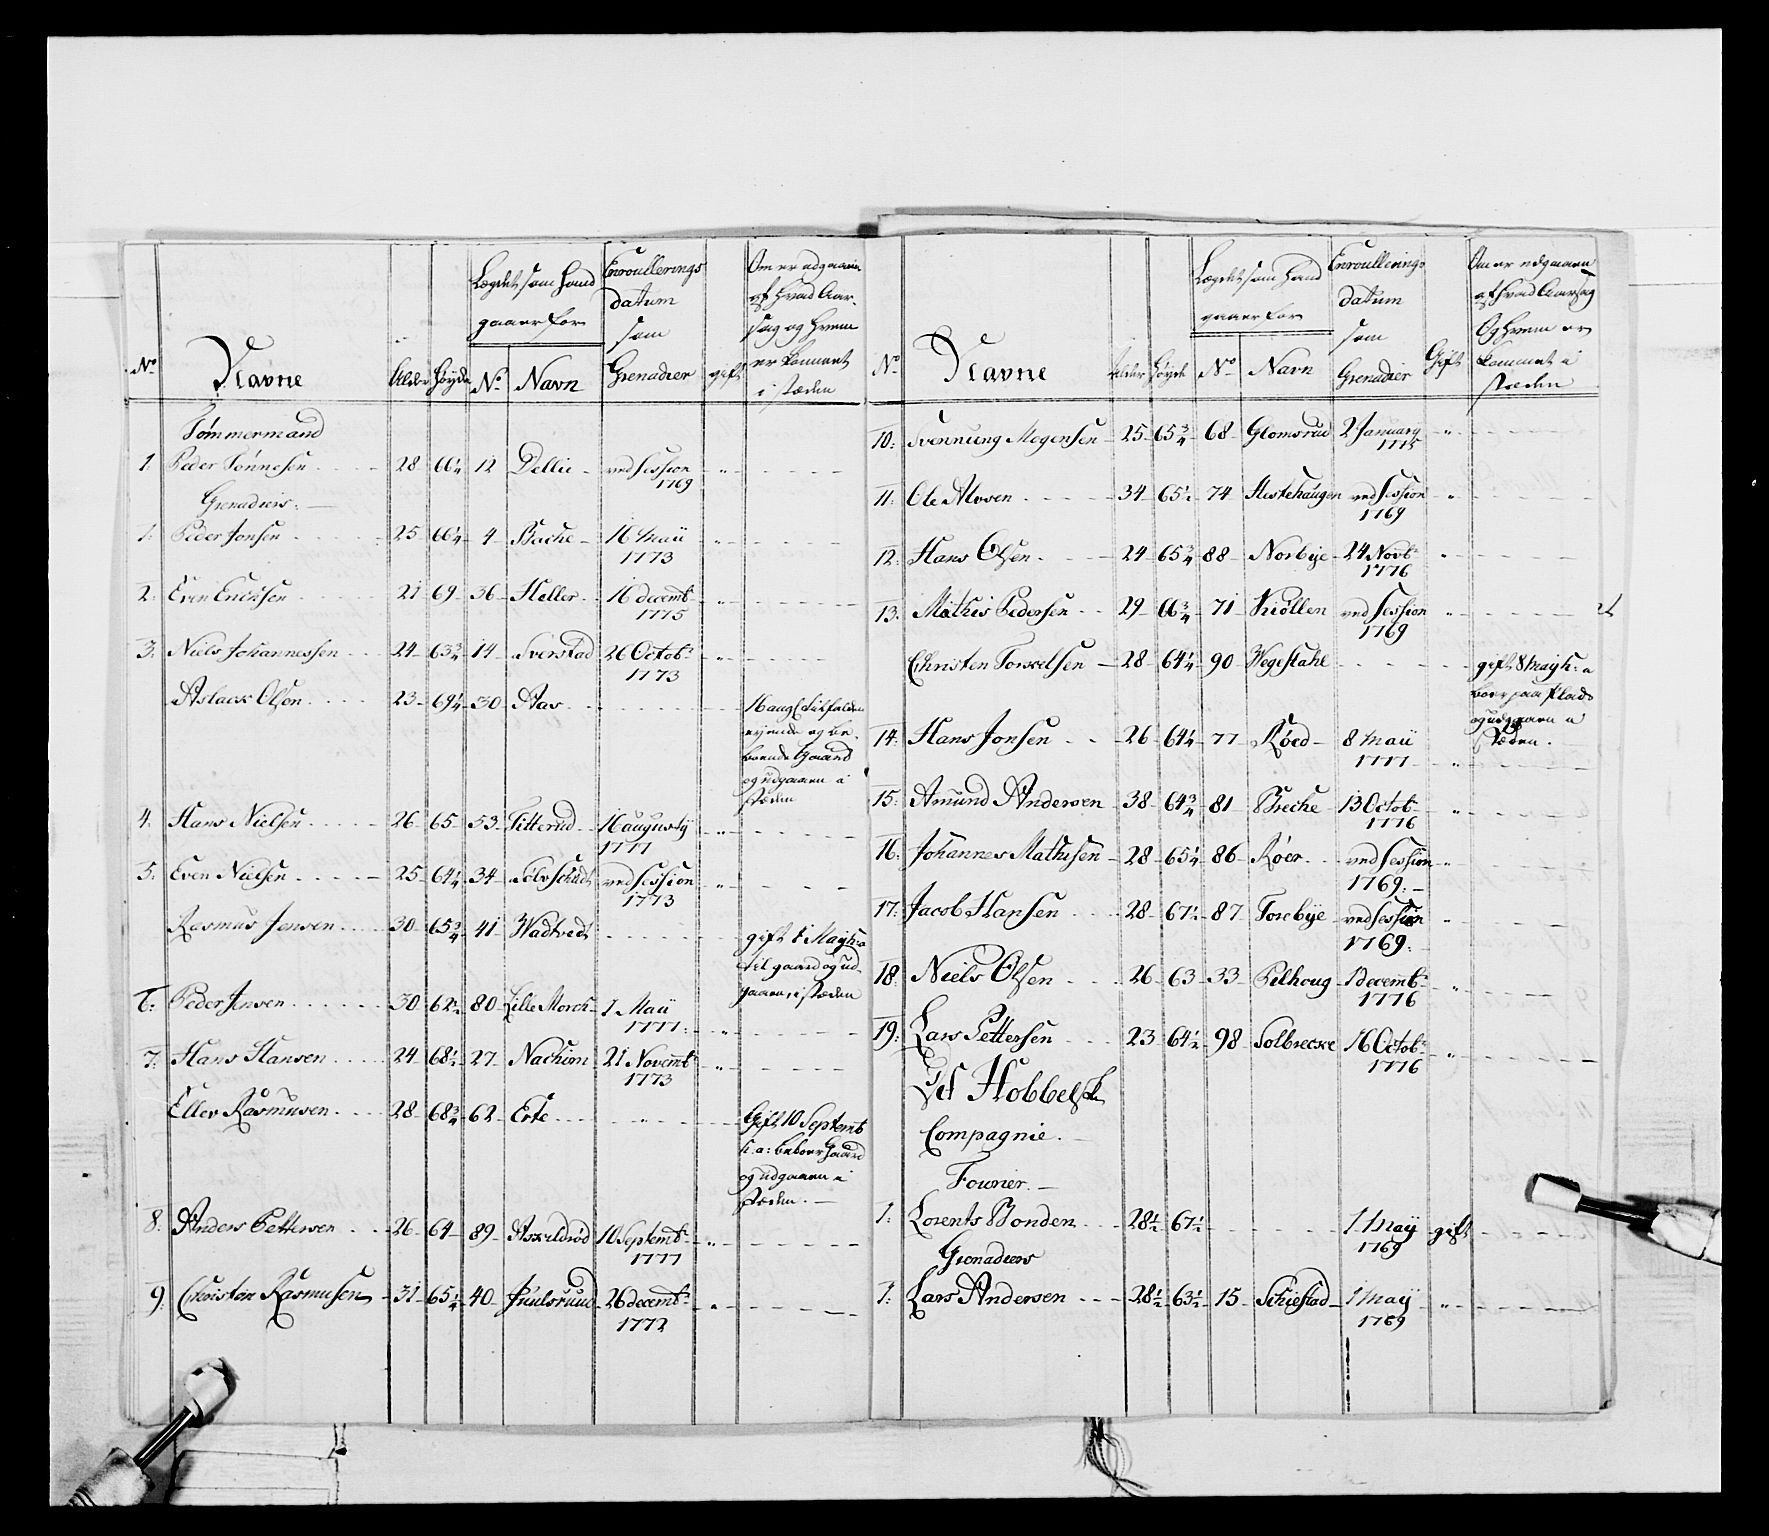 No
Navne
Alder
Høyde
Lægdet som hand
gaaer for
No
Navn
Enroullerings
datum
som
Grenadier
gift
Om er udgaaen
af hvad Aar-
sag og hvem
er kommet
i stæden
Tömmermand
1. Peder Tønnesen 28 66¼ 12 Dellie ved Session
1769
Grenadeirs:
1. Peder Jonsen 25 66¼ 4 Bache 16 Maii
1773
2. Even Ericksen 21 69 36 Heller 16 decembr
1775
3. Niels Johannessen 24 63¾ 14 Sverstad 26 Octobr
1773
Aslack Olsen 23 69¼ 30 Aas 16 aug
eyende og be-
boende Gaard
og udgaaen i
stæden
4. Hans Nielsen 26 65 53 Titterud 16 augusty
1777
5. Even Nielsen 25 64¼ 34 ved Session
1773
Rasmus Jensen 30 65¾ 41 Wadtvedt gift 1 May h: a
til gaard og ud-
gaaen i stæden
6. Peder Jensen 30 62½ 80 Lille Morch 1 Maii
1777
7. Hans Hansen 24 68½ 27 Nachim 21 Novembr
1773
Eller Rasmusen 28 68¾ 62 Erte Gift 10 Septembr
h: a: beboer Gaard
og udgaaen i
stæden.
8. Anders Pettersen 26 64 89 Askeldrød 10 Septembr
1777
9. Christen Rasmusen 31 65¼ 40 26 decembr
1772
No
Navne
Alder
Høyde
Lægdet som hand
gaaer for
No
Navn
Enroullerings
datum
som
Grenadier
Gift
Om er udgaaen
af hvad Aarsag
Og hvem er
kommet i
stæden
10: Svennung Mogensen 25 65¾ 68 Glomsrud 2 January
1775
11: Ole Alvsen 34 65½ 74 Hestehaugen ved Session
1769
12: Hans Olsen 24 65¾ 88 Norbye 24 Novbr
1776
13: Mathis Pedersen 29 66¾ 71 Kiøllen ved Session
1769
Christen Torkelsen 28 64¼ 90 Wegestahl gift 8 May h: a
boer paa Plads
og udgaaen i
stæden.
14: Hans Jonsen 26 64¼ 77 Røed 8 Maii
1777
15: Amund Andersen 38 64¾ 81 Breche 13 Octobr
1776
16: Johannes Mathisen 28 65¼ 86 Røer ved Session
1769:
17: Jacob Hansen 28 67½ 87 Torebye ved Session
1769:
18: Niels Olsen 26 63 33 Pelhoug 1 Decembr
1776
19: Lars Pettersen 23 64½ 98 Solbrecke 16 Octobr
1776
Hobbelsk
Compagnie.
Fourier.
1. Lorents Bonden 28½ 67½ 1 May
1769 gift
Grenadeers
1. Lars Andersen 28½ 63½ 15 Schiestad 1 May
1769